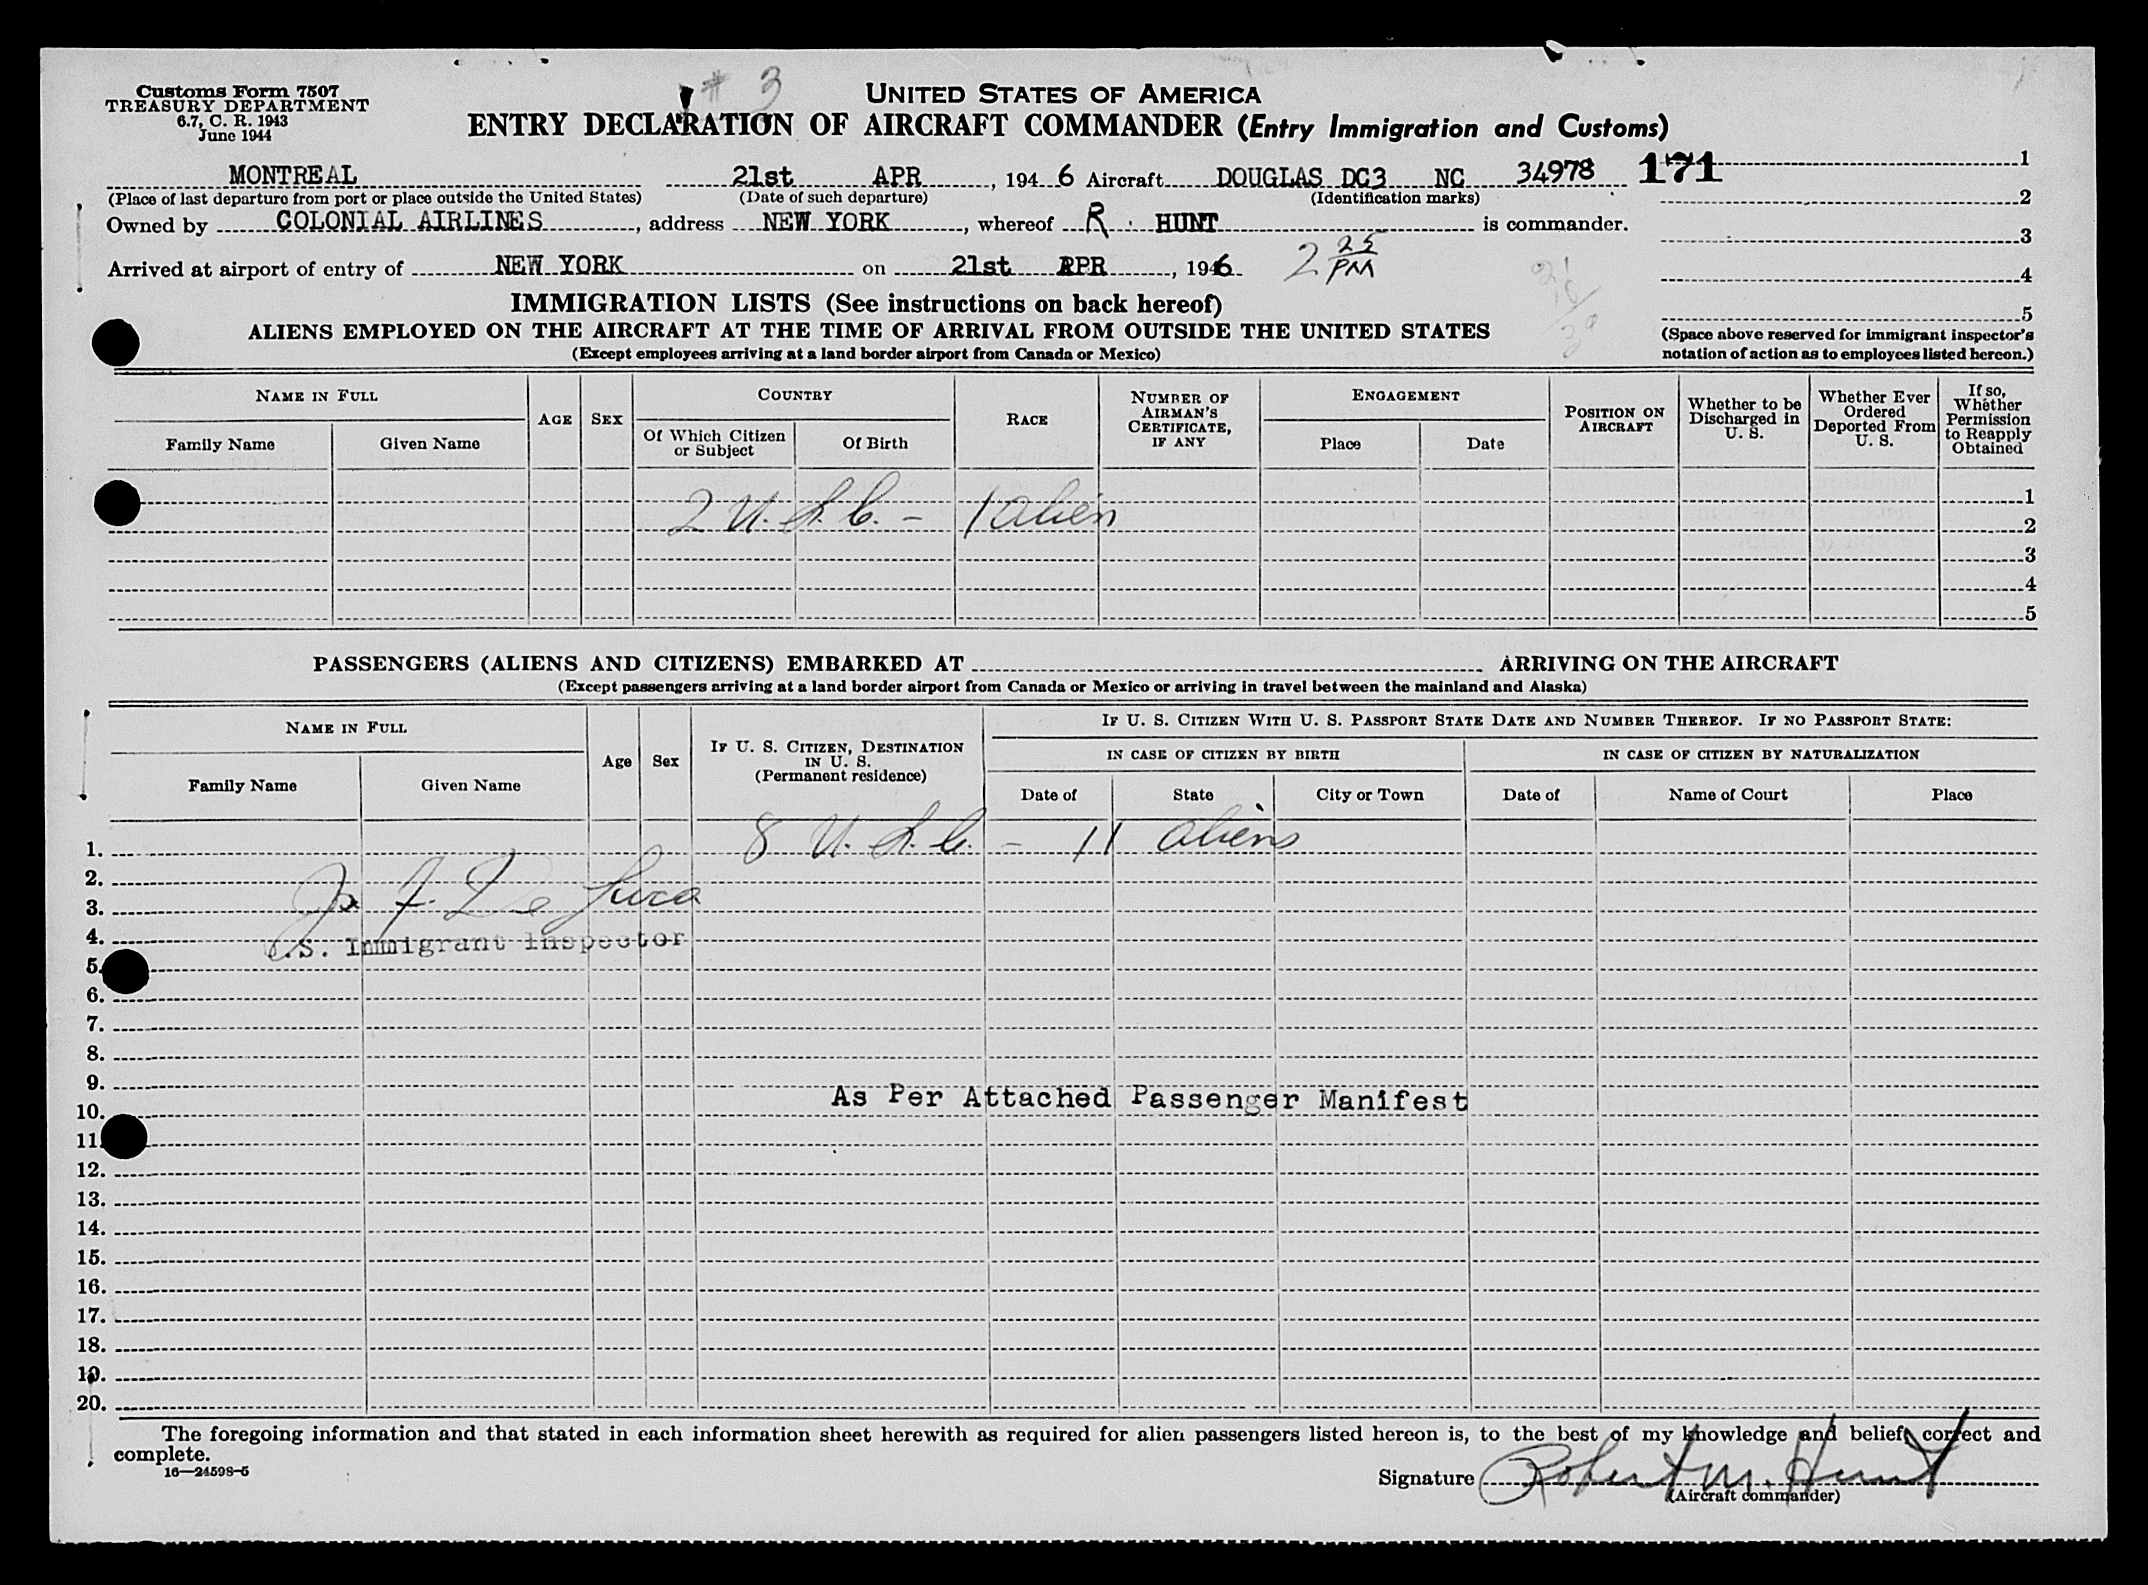 # 3
Customs Form 7507
TREASURY DEPARTMENT
6.7, C. R. 1943
June 1944
UNITED STATES OF AMERICA
ENTRY DECLARATION OF AIRCRAFT COMMANDER (Entry Immigration and Customs)
MONTREAL 21st APR, 1946 Aircraft DOUGLAS DC3 NC 34978 171
(Place of last departure from port or place outside the United States) (Date of such departure) (Identification marks)
Owned by COLONIAL AIRLINES, address NEW YORK, whereof R. HUNT is commander.
Arrived at airport of entry of NEW YORK on 21st APR, 1946. 2 25 PM
1
2
3
4
5
(Space above reserved for immigrant inspector's
notation of action as to employees listed hereon.)
IMMIGRATION LISTS (See instructions on back hereof)
ALIENS EMPLOYED ON THE AIRCRAFT AT THE TIME OF ARRIVAL FROM OUTSIDE THE UNITED STATES
(Except employees arriving at a land border airport from Canada or Mexico)
NAME IN FULL
Family Name Given Name
AGE SEX
COUNTRY
Of Which Citizen or Subject Of Birth
RACE
NUMBER OF AIRMAN'S CERTIFICATE, IF ANY
ENGAGEMENT
Place Date
POSITION ON AIRCRAFT
Whether to be Discharged in U. S.
Whether Ever Ordered Deported From U. S.
If so, Whether Permission to Reapply Obtained
1
2 U. S. C. - 1 alien 2
3
4
5
PASSENGERS (ALIENS AND CITIZENS) EMBARKED AT ARRIVING ON THE AIRCRAFT
(Except passengers arriving at a land border airport from Canada or Mexico or arriving in travel between the mainland and Alaska)
NAME IN FULL
Family Name Given Name
Age Sex
IF U. S. CITIZEN, DESTINATION IN U. S.
(Permanent residence)
IF U. S. CITIZEN WITH U. S. PASSPORT STATE DATE AND NUMBER THEREOF. IF NO PASSPORT STATE:
IN CASE OF CITIZEN BY BIRTH IN CASE OF CITIZEN BY NATURALIZATION
Date of State City or Town Date of Name of Court Place
1. 8 U. S. C. - 11 aliens
2.
3. F. De Luca
4. U.S. Immigrant Inspector
5.
6.
7.
8.
9.
As Per Attached Passenger Manifest
10.
11.
12.
13.
14.
15.
16.
17.
18.
19.
20.
The foregoing information and that stated in each information sheet herewith as required for alien passengers listed hereon is, to the best of my knowledge and belief, correct and
complete.
16—24598-5
Signature Robert M. Hunt
(Aircraft commander)